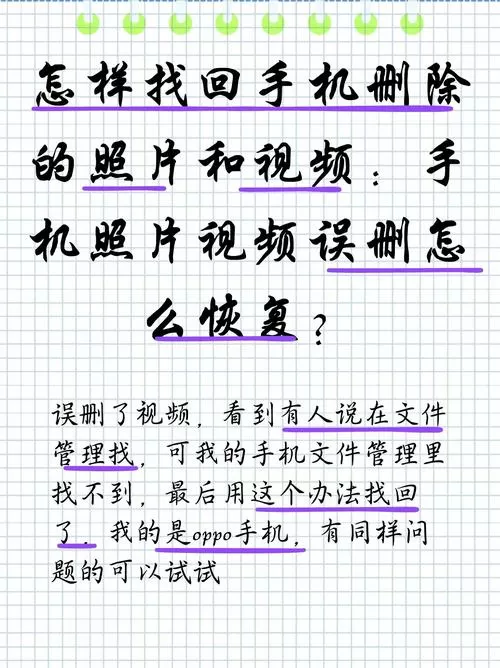 怎样找回手机删除
的照片和视频：手
机照片视频误删怎
么恢复？
误删了视频，看到有人说在文件
管理找，可我的手机文件管理里
找不到，最后用这个办法找回
了．我的是oppo手机，有同样问
题的可以试试